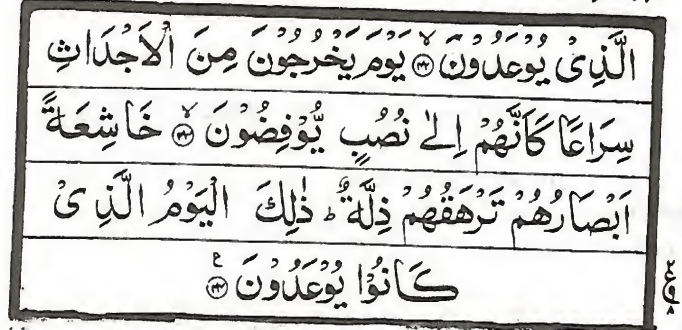 الَّذِیْ یُوْعَدُوْنَ ۙ﴿۴۲﴾ یَوْمَ یَخْرُجُوْنَ مِنَ الْاَجْدَاثِ
سِرَاعًا كَاَنَّهُمْ اِلٰی نُصُبٍ یُّوْفِضُوْنَ ۙ﴿۴۳﴾ خَاشِعَةً
اَبْصَارُهُمْ تَرْهَقُهُمْ ذِلَّةٌ ؕ ذٰلِكَ الْیَوْمُ الَّذِیْ
كَانُوْا یُوْعَدُوْنَ ﴿۴۴﴾ ع